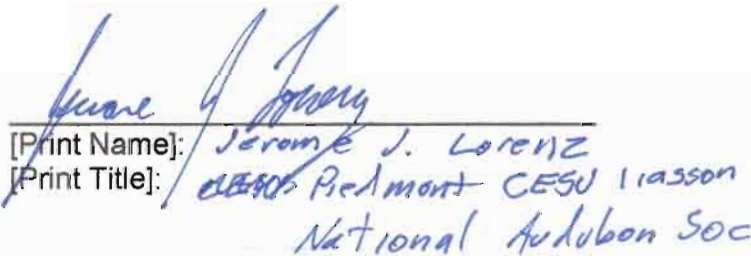 Jerome J. Lorenz
[Print Name]: Jerome J. Lorenz
[Print Title]: Piedmont CESU liasson
National Audubon Soc